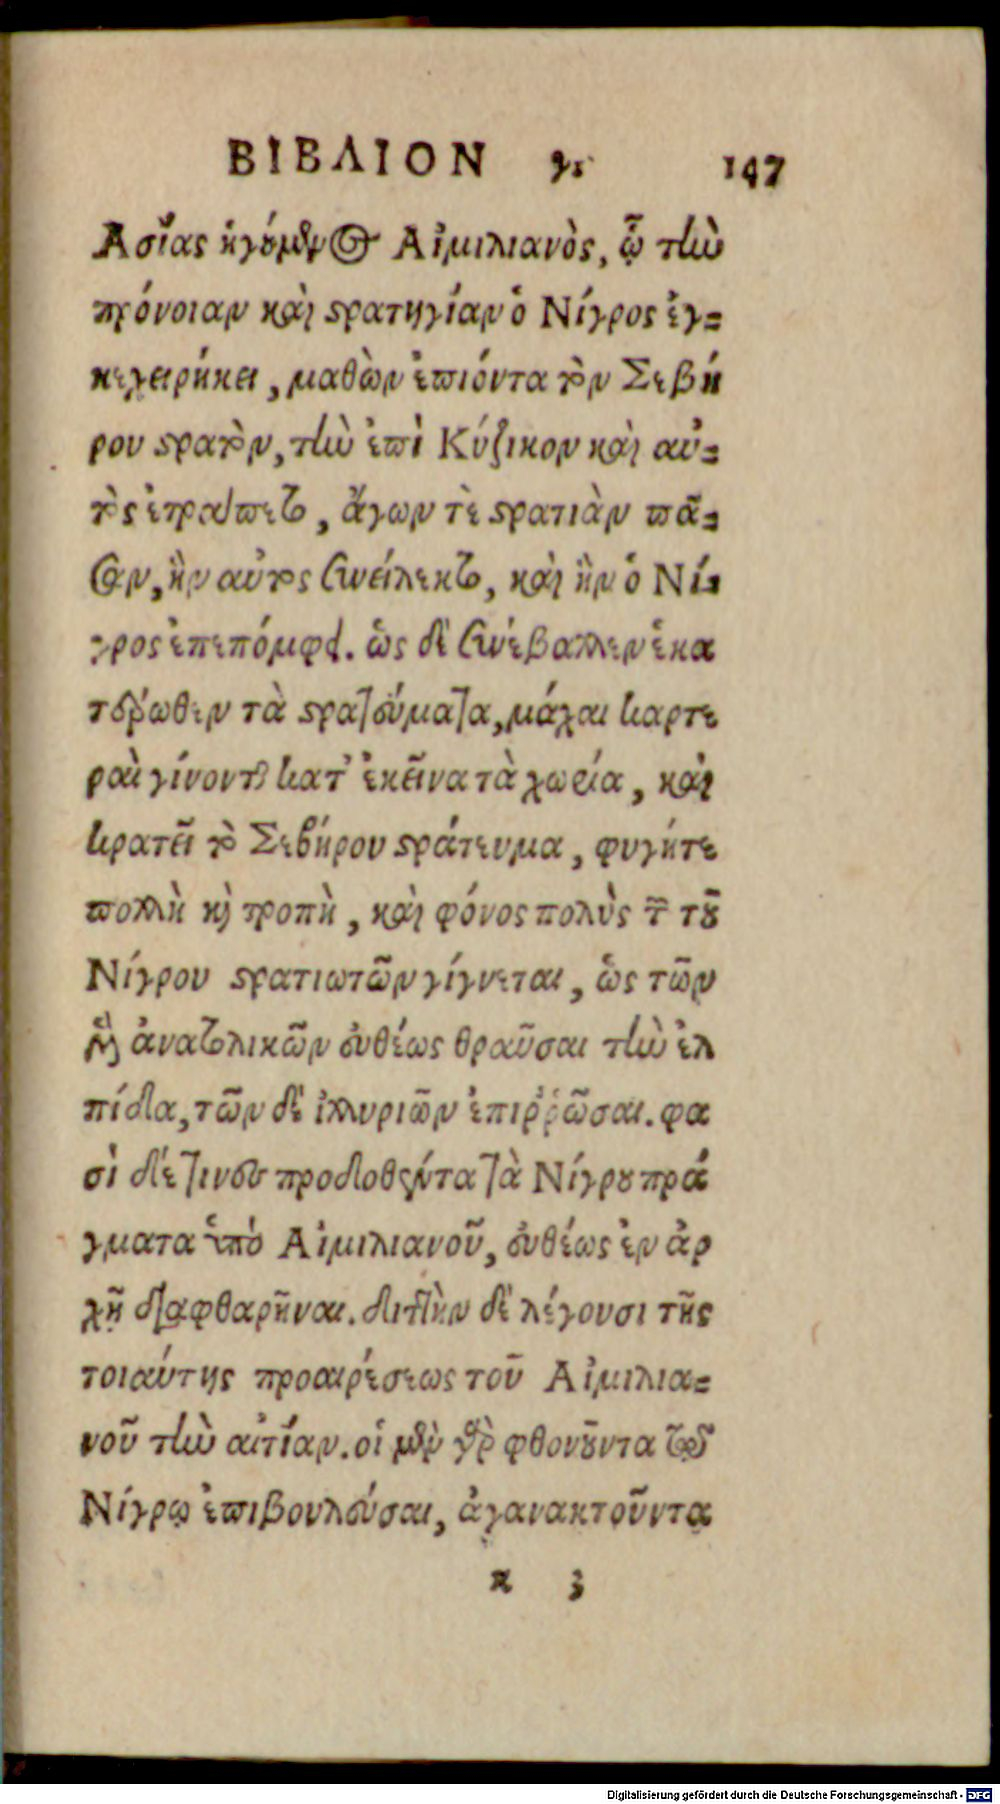 ΒΙΒΛΙΟΝ γ. 147
Ἀσίας ἡγούμενος Αἰμιλιανὸς, ᾧ τὴν
πρόνοιαν καὶ στρατηγίαν ὁ Νίγρος ἐγ-
κεχειρήκει, μαθὼν ἐπιόντα τὸν Σεβή
ρου στρατὸν, τὴν ἐπὶ Κύζικον καὶ αὐ-
τὸς ἐτράπετο, ἄγων τὲ στρατιὰν πᾶ-
σαν, ἣν αὐτος συνείλεκτο, καὶ ἣν ὁ Νί-
γρος ἐπεπόμφει. ὡς δὲ συνέβαλλεν ἑκα
τέρωθεν τὰ στρατεύματα, μάχαι καρτε
ραὶ γίνονται κατ' ἐκεῖνα τὰ χωρία, καὶ
κρατεῖ τὸ Σεβήρου στράτευμα, φυγήτε
πολλὴ καὶ τροπὴ, καὶ φόνος πολὺς τῶν τοῦ
Νίγρου στρατιωτῶν γίγνεται, ὡς τῶν
μὲν ἀνατολικῶν εὐθέως θραῦσαι τὴν ἐλ
πίδα, τῶν δὲ ἰλλυριῶν ἐπιῤῥῶσαι. φα
σὶ δέ τινες προδοθέντα τὰ Νίγρου πρά
γματα ὑπὸ Αἰμιλιανοῦ, εὐθέως ἐν ἀρ
χῇ διαφθαρῆναι. διττὴν δὲ λέγουσι τῆς
τοιαύτης προαιρέσεως τοῦ Αἰμιλια-
νοῦ τὴν αἰτίαν. οἱ μὲν γὰρ φθονοῦντα τῷ
Νίγρῳ ἐπιβουλεύσαι, ἀγανακτοῦντα
κ 3
Digitalisierung gefördert durch die Deutsche Forschungsgemeinschaft - DFG